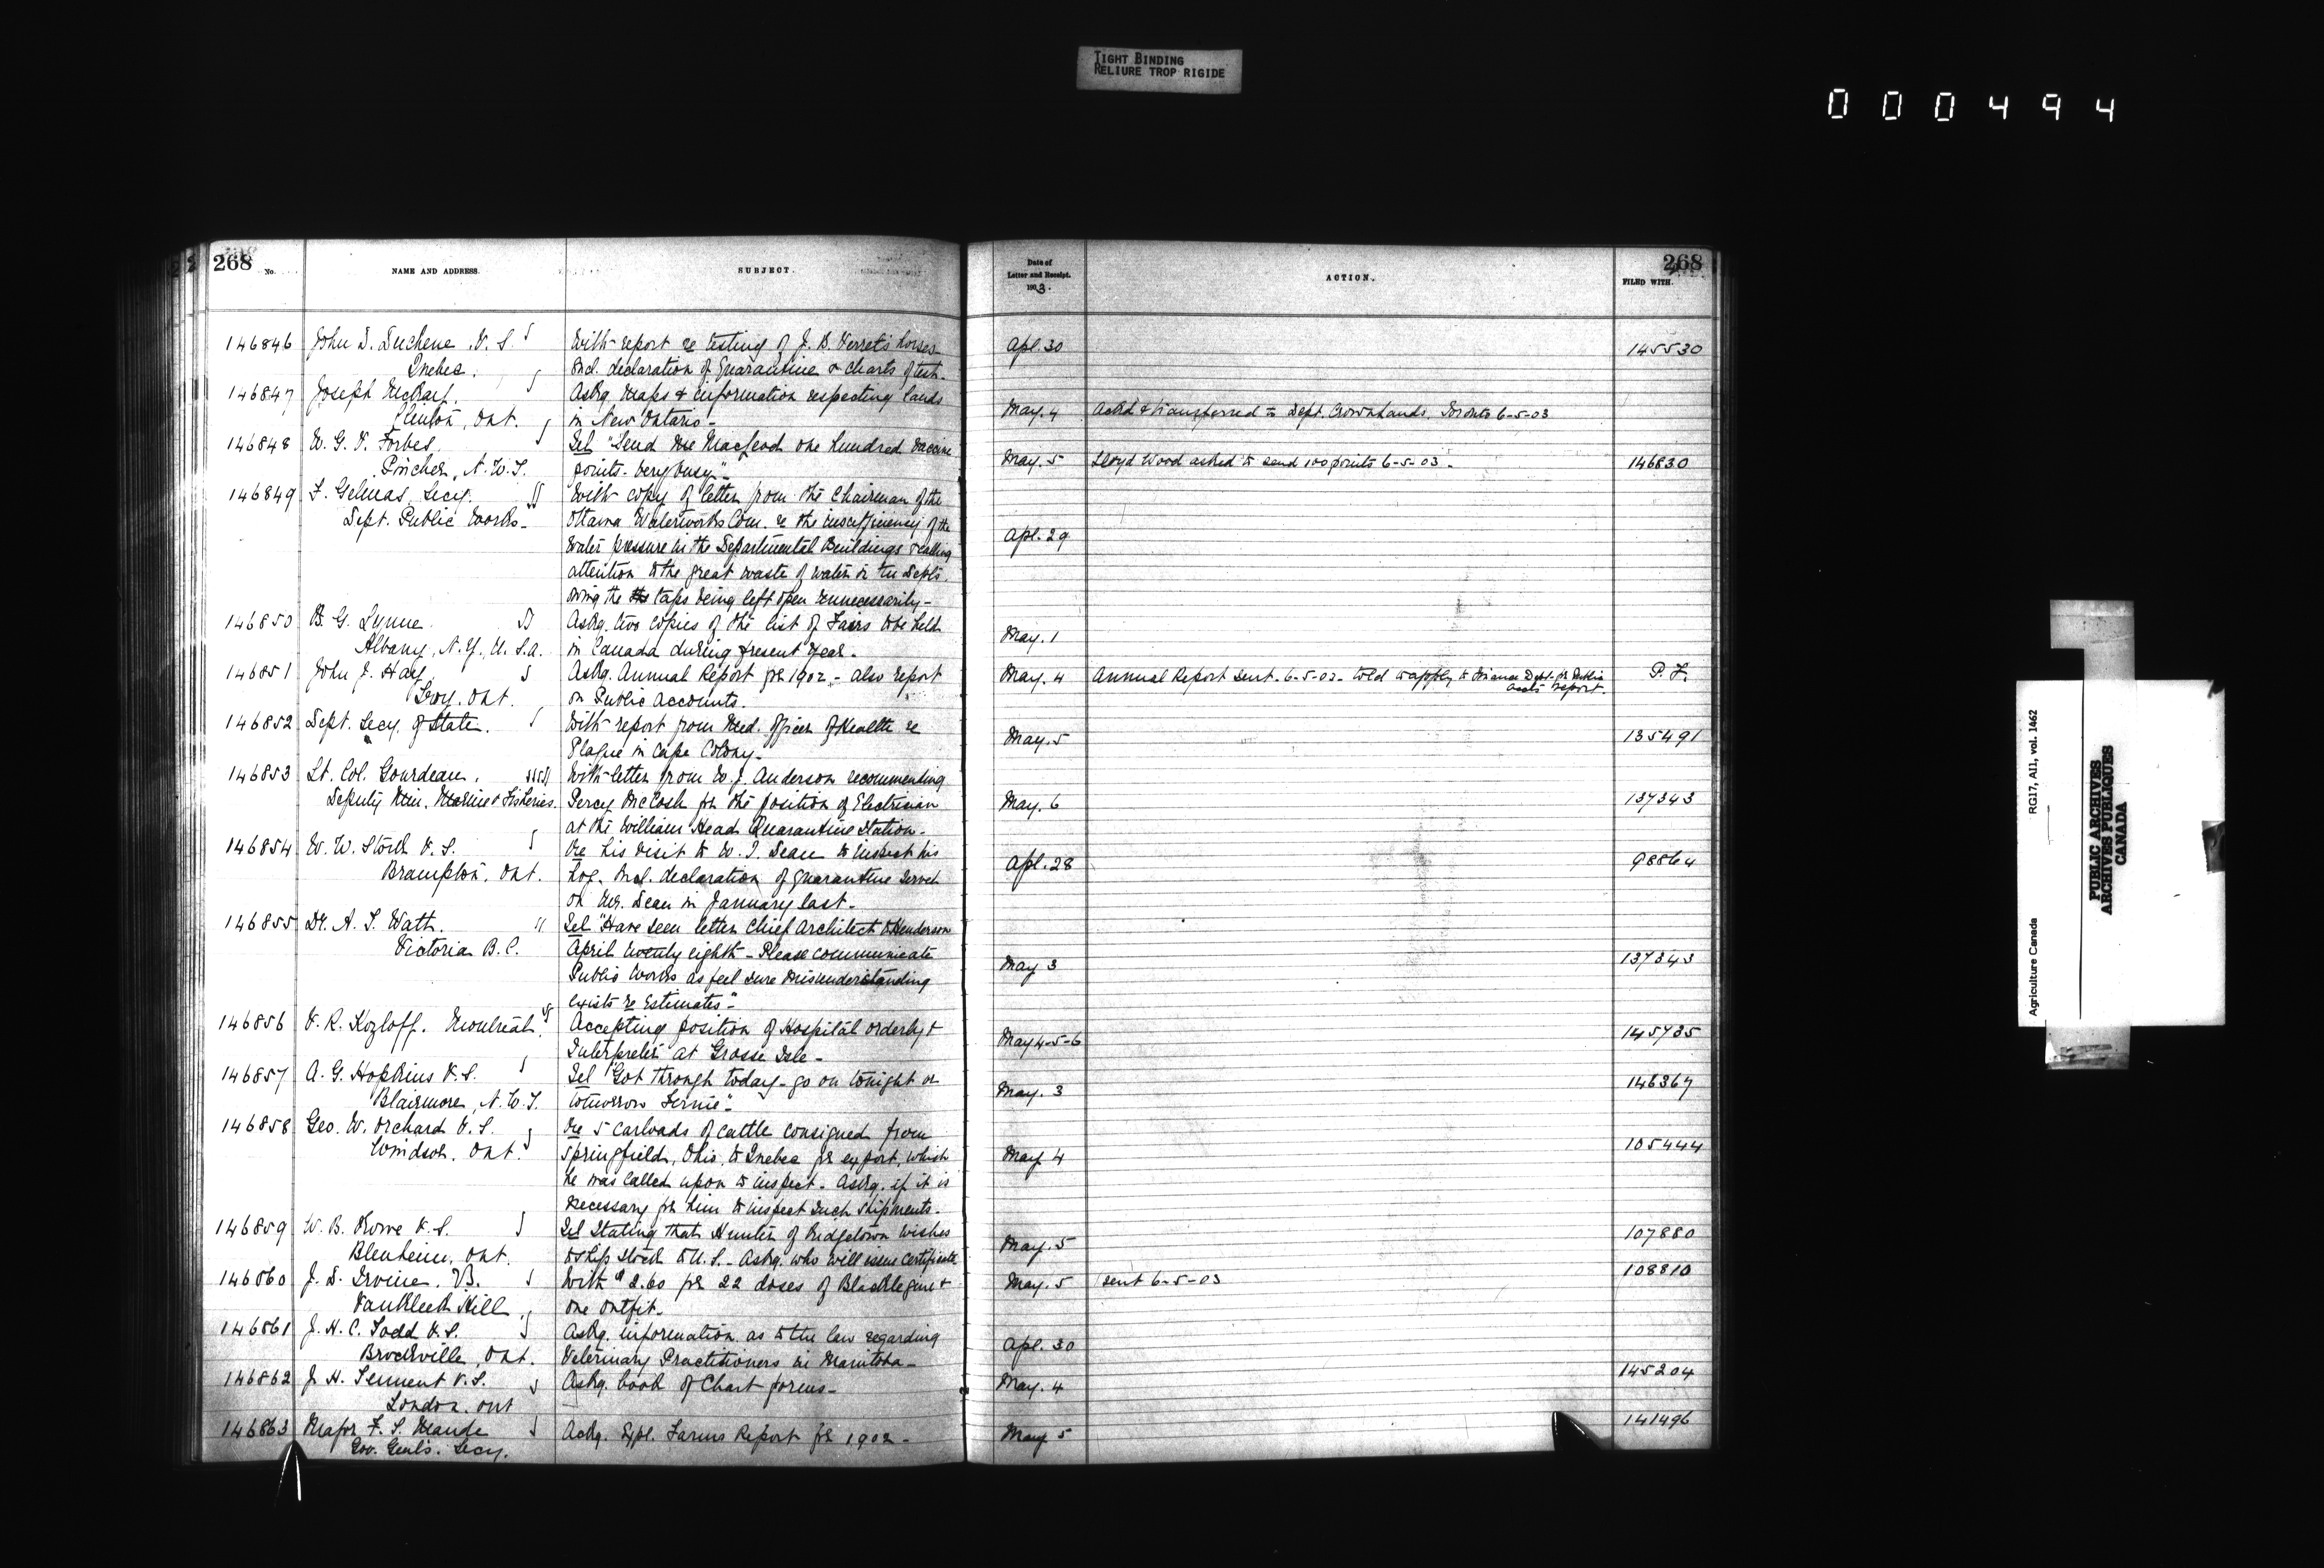 TIGHT BINDING
RELIURE TROP RIGIDE
000494
268
No.
NAME AND ADDRESS.
SUBJECT.
146846 John D. Duchene V.S. With report re testing of J. B. Verret's horses
Quebec. Incl. declaration of Quarantine & charts of test.
146847 Joseph Askg. maps & information respecting lands
Clinton, Ont. in New Ontario -
146848 W. G. V. Forbes. Tel "Send me Macleod one hundred vaccine
Pincher, N.W.T. points. very busy"
146849 F. Gelinas, Secy. With copy of letter from the Chairman of the
Dept. Public Works - Ottawa Waterworks Com. re the insufficiency of the
water pressure in the Departmental Buildings & calling
attention to the great waste of water in the Depts
owing the taps being left open unnecessarily -
146850 B. G. Lynne. Askg. two copies of the list of Fairs to be held
Albany, N.Y., U.S.A. in Canada during present year.
146851 John J. Askg. Annual Report for 1902 - also report
Ont. on Public Accounts.
146852 Dept. Secy. of State. With report from Med. Officer of Health re
Plague in Cape Colony -
146853 Lt. Col. Gourdeau. With letter from W. J. Anderson recommending
Deputy Min. Marine & Fisheries. Percy McCosh for the position of Electrician
at the William Head Quarantine Station -
146854 W. W. Stork V.S. Re his visit to W. J. Dean to inspect his
Brampton, Ont. hog. Incl. declaration of quarantine served
on Mr. Dean in January last -
146855 Dr. A. T. Watt. Tel "Have seen letter Chief Architect to Henderson
Victoria B.C. April twenty eighth - Please communicate
Public Works as feel sure misunderstanding
exists re Estimates" -
146856 V. R. Kozloff. Montreal. Accepting position of Hospital orderly &
Interpreter at Grosse Isle -
146857 A. G. Hopkins V.S. Tel "Got through today - go on tonight or
Blairmore, N.W.T. tomorrow Fernie" -
146858 Geo. W. Orchard V.S. Re 5 carloads of cattle consigned from
Windsor, Ont. Springfield, Ohio, to Quebec for export, which
he was called upon to inspect. Askg. if it is
necessary for him to inspect such shipments.
146859 W. B. Rowe V.S. Tel stating that Hunter of Ridgetown wishes
Blenheim, Ont. to ship stock to U.S. - Askg. who will issue certificate
146860 J. D. Irvine, With $2.60 for 22 doses of Blacklegine &
Vankleek Hill one outfit -
146861 J. H. C. Todd V.S. Askg. information as to the law regarding
Brockville, Ont. Veterinary Practitioners in Manitoba -
146862 J. H. Tennent V.S. Askg. book of Chart forms -
London, Ont
146863 Major F. S. Maude Askg. Expl. Farms Report for 1902 -
Gov. Genl's. Secy.
Date of
Letter and Receipt.
1903.
ACTION.
268
FILED WITH.
Apl. 30 145530
May. 4 Ackd & transferred to Dept. Crown Lands, Toronto 6-5-03
May. 5 Lloyd Wood asked to send 100 points 6-5-03. 146830
Apl. 29
May. 1
May. 4 Annual Report sent. 6-5-03 - told to apply to Finance Dept. for Public P. F.
Accts report.
May. 5 135491
May. 6 137343
Apl. 28 98864
May 3 137343
May 4-5-6 145735
May. 3 146367
May 4 105444
May. 5 107880
May. 5 sent 6-5-03 108810
Apl. 30
May. 4 145204
May 5 141496
Agriculture Canada RG17, AII, vol. 1462
PUBLIC ARCHIVES
ARCHIVES PUBLIQUES
CANADA